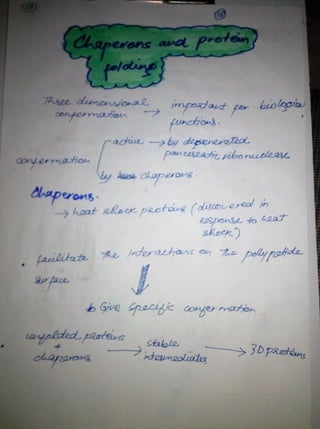 Chaperons and protein
folding
Three dimensional → important for biological
confermation functions.
active → by degenerated
pancreatic ribonuclease
confermation
by chaperons
Chaperons.
→ heat shock proteins (discovered in
response to heat
shock)
• facilitate the Interactions on the polypetide
surface
to Give specific confermation
• unfolded proteins → stable → 3D proteins
+ intermediates
chaperons